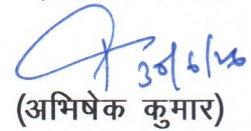 30/6/26
(अभिषेक कुमार)